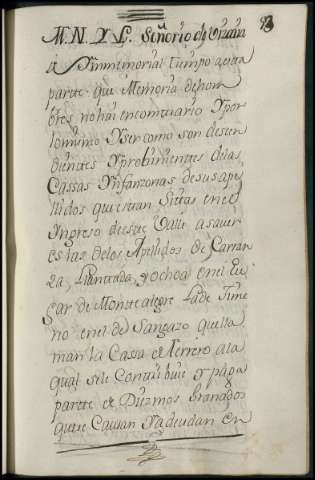 M. N. Y L. Señorio de Vizcaia
de Ynmemorial tiempo a esta
parte que Memoria de hom
bres no hai en contrario Y por
lo mismo Y ser como son desen
dientes Y probinientes de las
Cassas Ynfanzonas de sus ape
llidos que estan Sitas en el
Ingreso de este Valle a saver
es las de los Apellidos de Carran
za, Llanteada, y ochoa en el Lu
gar de Montealegre La de Xime
no en el de Sangazo que lla
man la Cassa de Herrero a la
qual se le Contribuie Y paga
parte de Diezmos Granados
que se Causan Y adeudan en